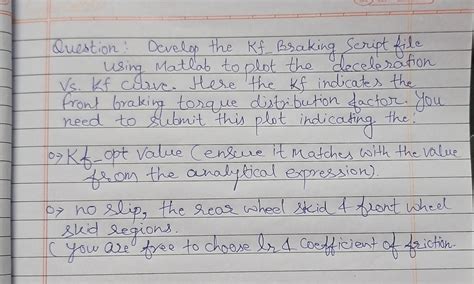 Question: Develop the Kf_Braking Script file
using Matlab to plot the deceleration
Vs. Kf curve. Here the Kf indicates the
front braking torque distribution factor. You
need to submit this plot indicating the:
o⇒ Kf-opt Value (ensure it matches with the value
from the analytical expression).
o⇒ no slip, the rear wheel skid & front wheel
skid regions.
(You are free to choose lr & coefficient of friction.